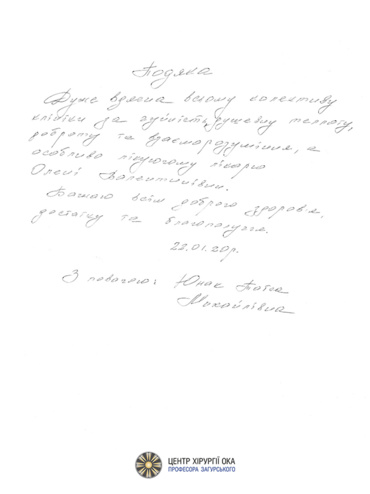 Подяка
Дуже вдячна всьому колективу
клініки за чуйність, душевну теплоту,
доброту та взаєморозуміння, а
особливо лікуючому лікарю
Олені Валентинівні.
Бажаю всім доброго здоров'я,
достатку та благополуччя.
22.01.20р.
З повагою: Юнас
Михайлівна
ЦЕНТР ХІРУРГІЇ ОКА
ПРОФЕСОРА ЗАГУРСЬКОГО